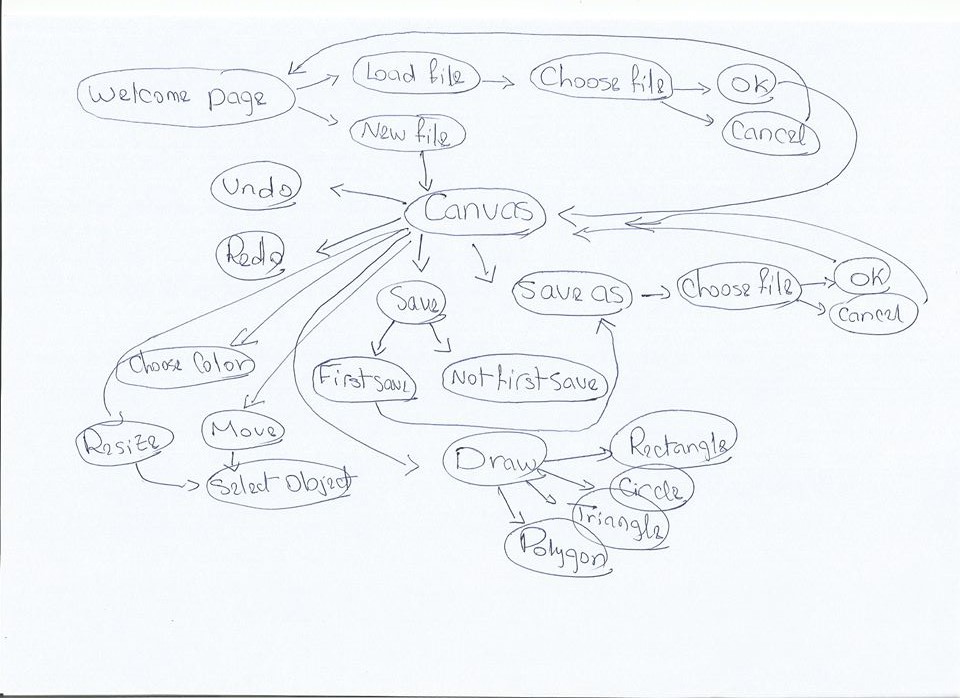 Welcome page
Load file
Choose file
OK
Cancel
New file
Undo
Canvas
Redo
Save
Save as
Choose file
OK
Cancel
Choose Color
First save
Not first save
Resize
Move
Select Object
Draw
Rectangle
Circle
Triangle
Polygon